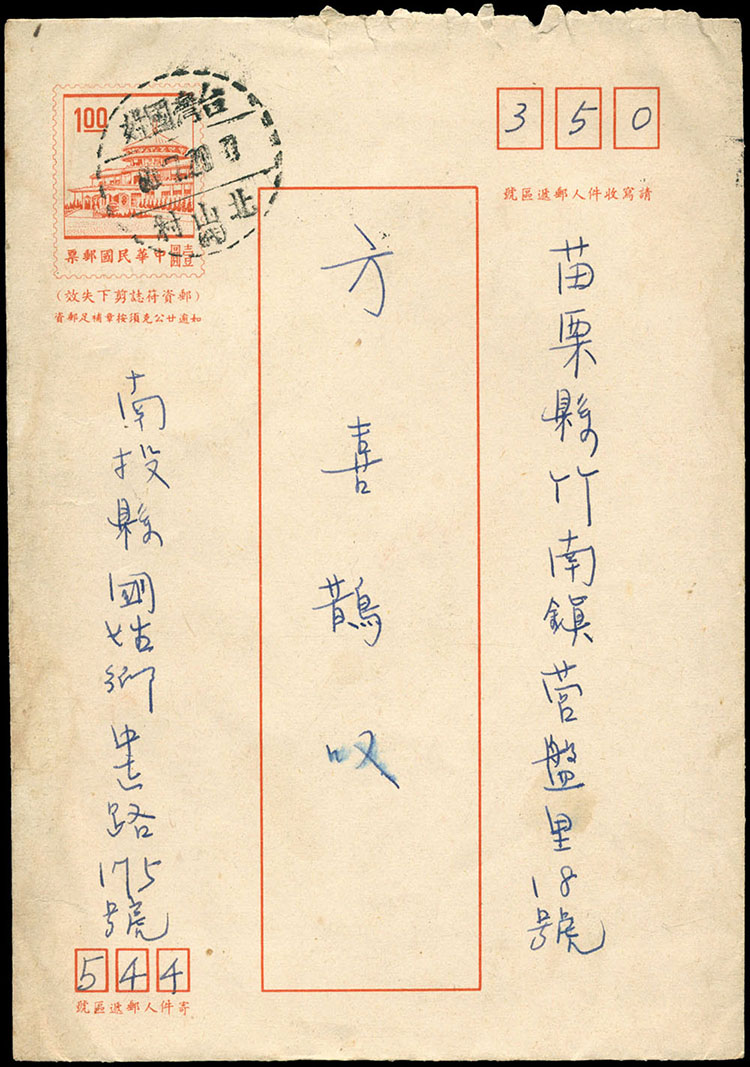 350
請寫收件人郵遞區號
苗栗縣竹南鎮营盤里18號
方喜鵲
南投縣國姓鄉
路175號
544
寄件人郵遞區號
1.00
中華民國郵票
壹圓
(郵資符誌剪下失效)
如逾廿公克須按章補足郵資
台灣國姓
北山村